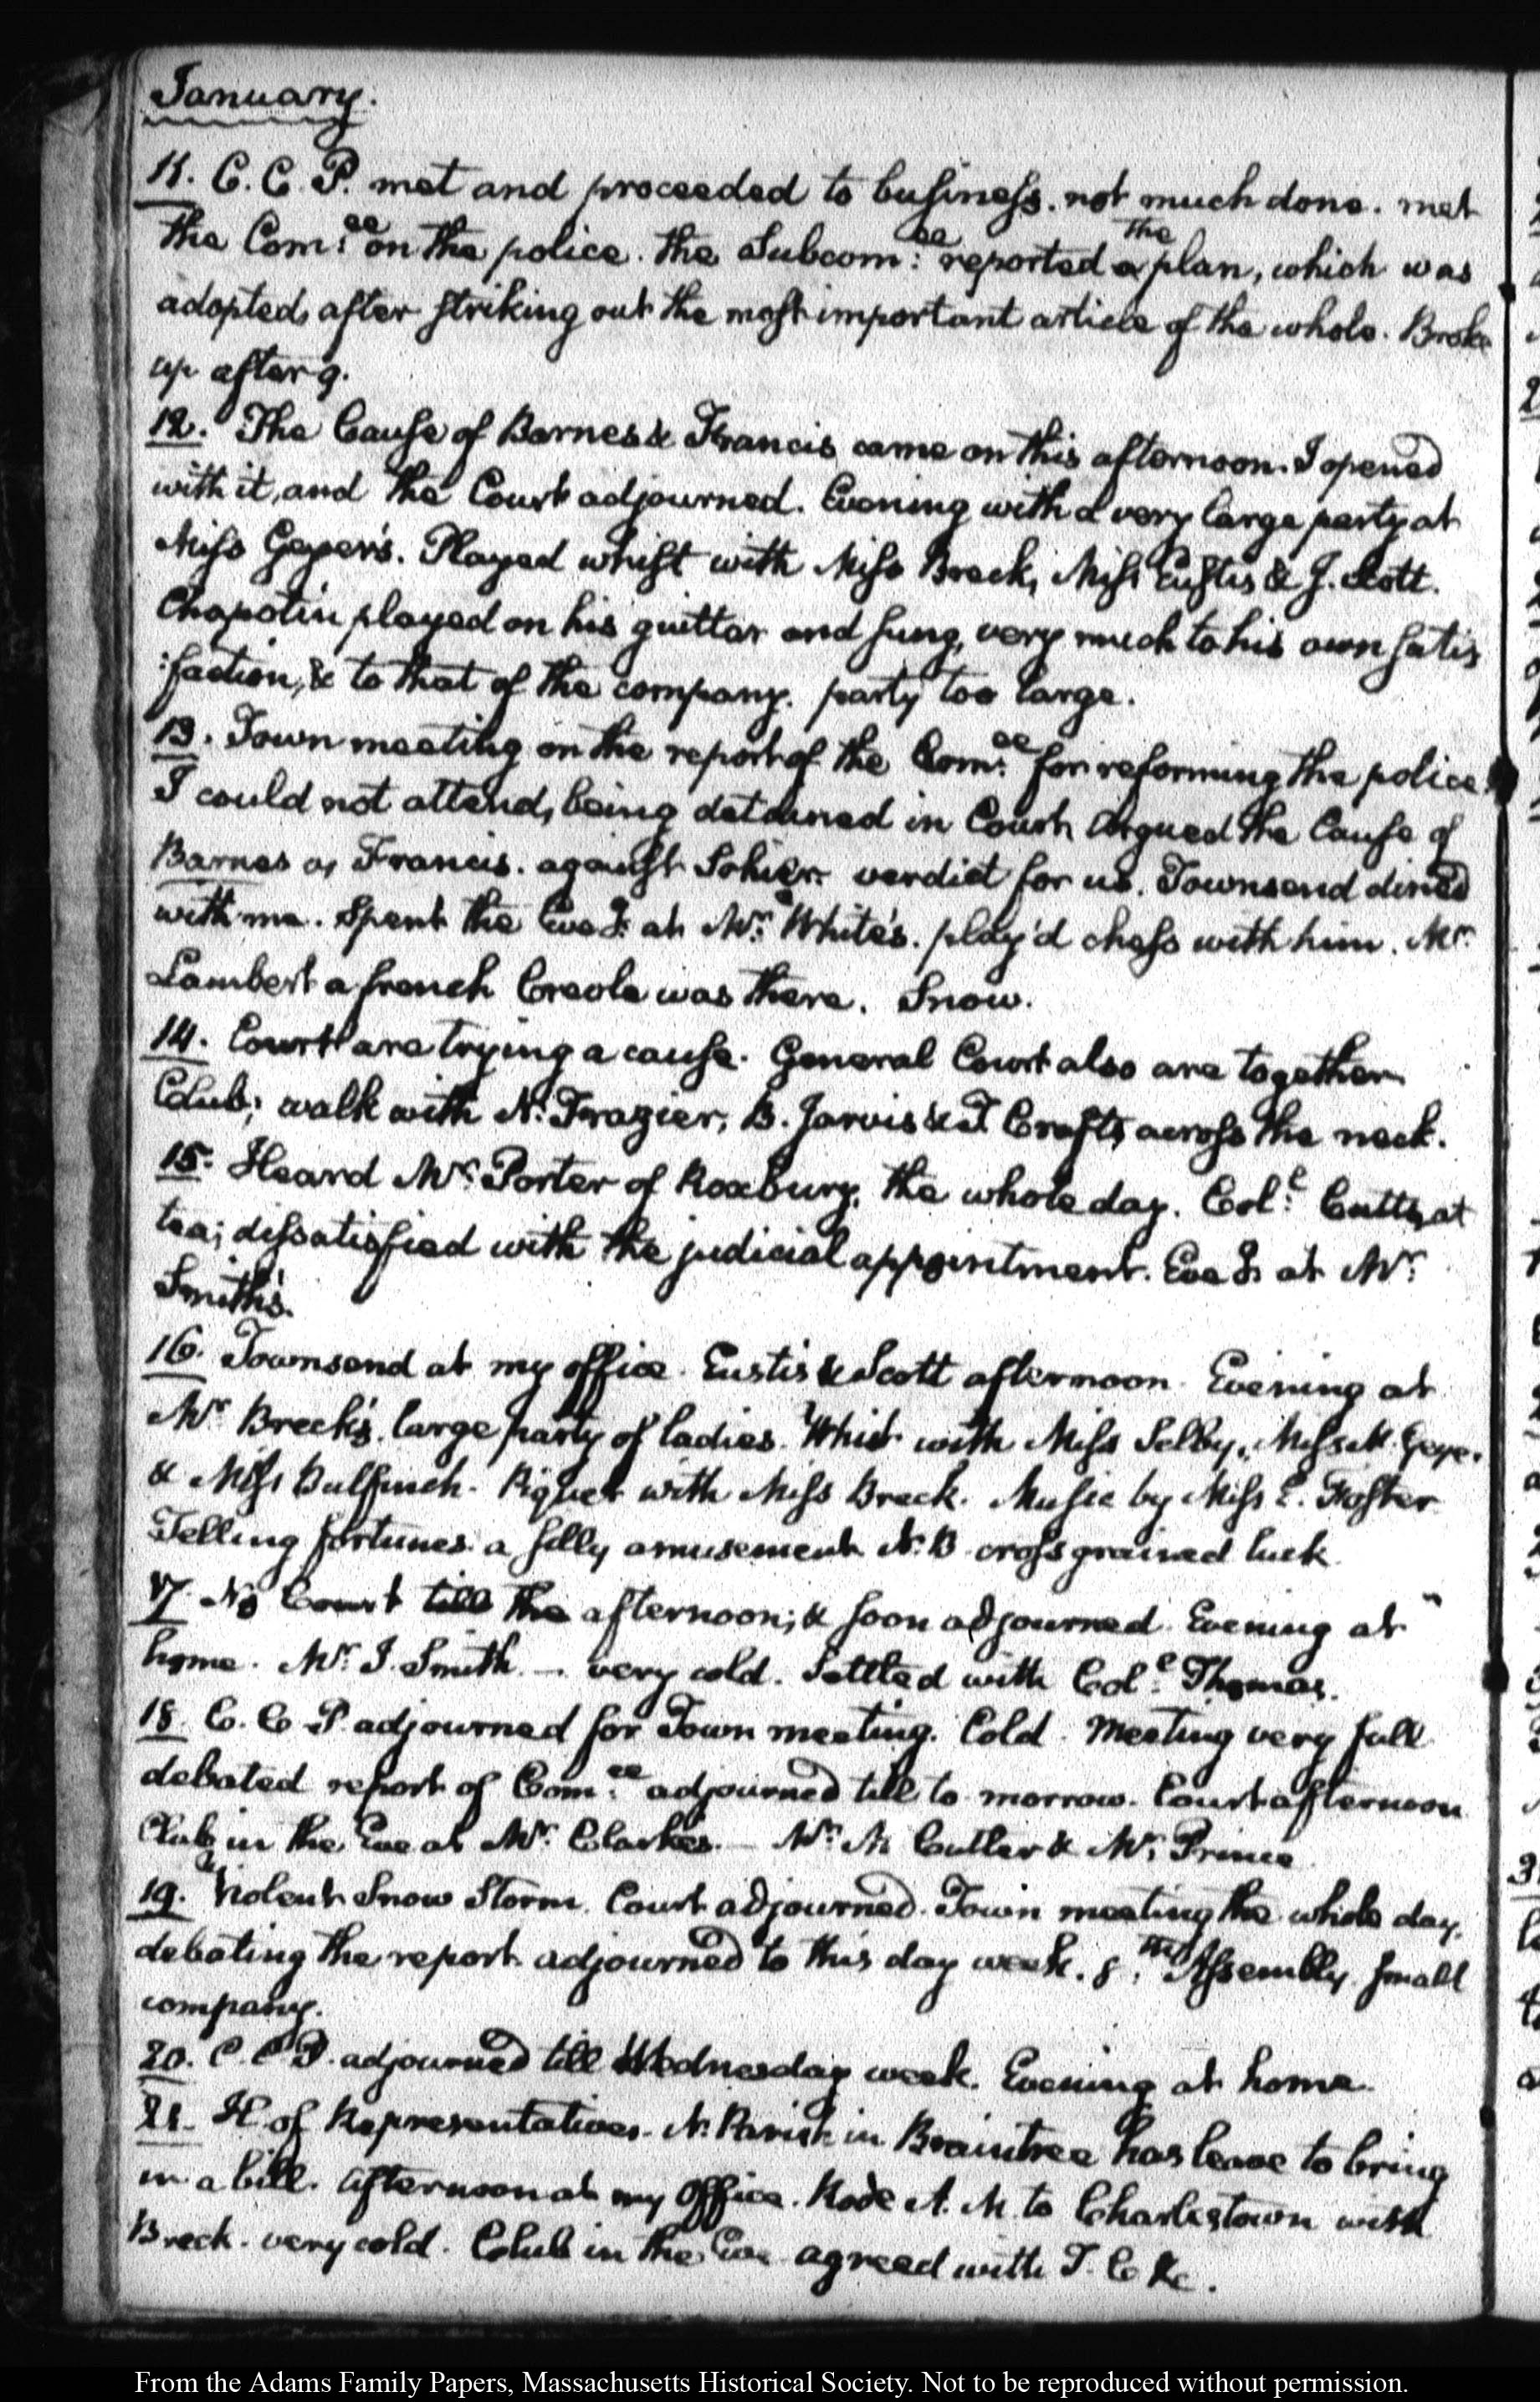 January.
11. C. C. P. met and proceeded to business. not much done. met
the Com:ee on the police. the Subcom:ee reported a the plan, which was
adopted, after striking out the most important article of the whole. Broke
up after 9.
12. The Cause of Barnes & Francis came on this afternoon. I opened
with it, and the Court adjourned. Evening with a very large party at
Miss Geyer's. Played whist with Miss Breck, Miss Eustis & J. Scott.
Chapotin played on his guittar and sung, very much to his own satis
:faction, & to that of the company. party too large.
13. Town meeting on the report of the Com:ee for reforming the police.
I could not attend, being detained in Court. Argued the Cause of
Barnes vs Francis. against Sohier. verdict for us. Townsend dined
with me. Spent the Eve.g at Mr. White's. play'd chess with him. Mr.
Lambert a french Creole was there. Snow.
14. Court are trying a cause. General Court also are together.
Club; walk with N. Frazier, B. Jarvis & T. Crafts, across the neck.
15. Heard Mr. Porter of Roxbury, the whole day. Col:l Cutts, at
tea; dissatisfied with the judicial appointment. Eve.g at Mr.
Smith's.
16. Townsend at my office. Eustis & Scott afternoon. Evening at
Mr. Breck's. large party of ladies. Whist with Miss Selby, Miss M. Geyer
& Miss Bulfinch. Piquet with Miss Breck. Music by Miss E. Foster
Telling fortunes. a silly amusement. N. B. cross grained luck
17. No Court till the afternoon; & soon adjourned. Evening at
home. Mr. I. Smith. — very cold. Settled with Col:l Thomas.
18. C. C. P. adjourned for Town meeting. Cold. Meeting very full
debated report of Com:ee adjourned till to morrow. Court afternoon
Club in the Eve at Mr. Clarke's. — Mr. M. Cutler & Mr. Prince
19. Violent Snow Storm. Court adjourned. Town meeting the whole day,
debating the report. adjourned to this day week. 8:th Assembly. small
company.
20. C. C. P. adjourned till Wednesday week. Evening at home.
21. H. of Representatives. N. Parish in Braintree has leave to bring
in a bill. afternoon at my Office. Rode A. M. to Charlestown with
Breck. very cold. Club in the Eve. agreed with T. C &c.
From the Adams Family Papers, Massachusetts Historical Society. Not to be reproduced without permission.